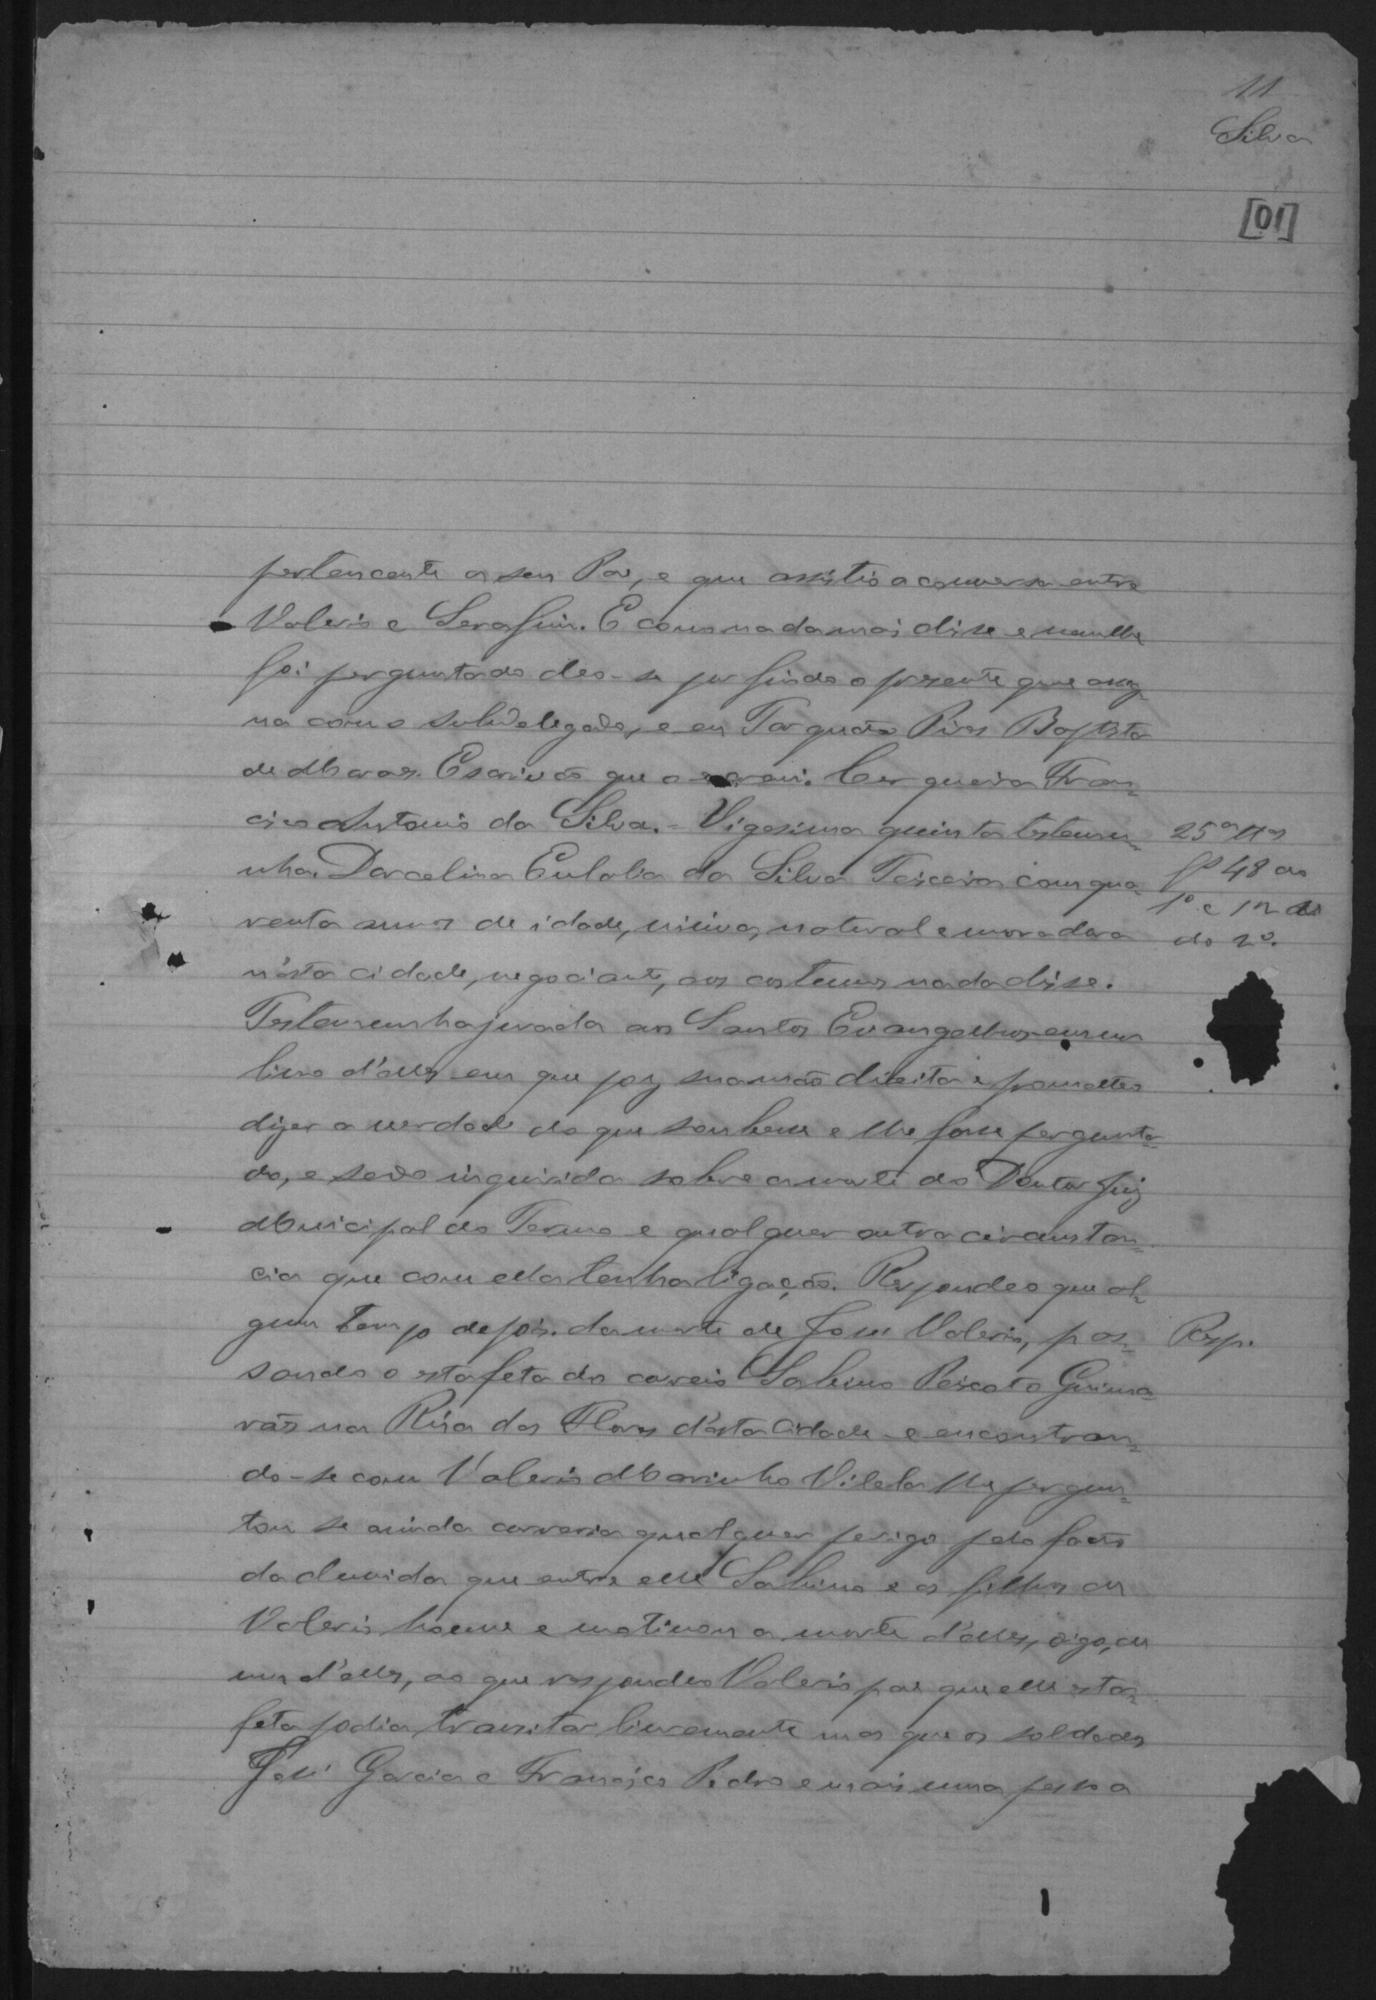 11
Silva
[01]
pertencente a seu Pai, e que assistio a conversa entre
Valerio e Serafim. E como nada mais disse e nem lhe
foi perguntado deo-se por findo o presente que assig-
na com o subdelegado, e eu Torquato Pires Baptista
de Moraes Escrivão que o escrevi. Cerqueira Fran-
cisco Antonio da Silva. - Vigesima quinta testemu-
25ª
nha. Darcelina Eulalia da Silva Teixeira com qua-
fs 48 do
renta annos de idade, viuva, natural e moradora
1º e
do 2º.
n'esta cidade, negociante, aos costumes nada disse.
Testemunha jurada aos Santos Evangelhos em um
livro d'elles em que poz sua mão direita e prometteo
dizer a verdade do que soubesse e lhe fosse pergunta-
do, e sendo inquirida sobre a morte do Doutor Juiz
Municipal do Termo e qualquer outra circunstan-
cia que com ella tenha ligação. Respondeo que al-
gum tempo depois da morte de José Valerio, pas-
Resp.
sando o estafeta do correio Sabino Peixoto Guima-
rães na Rua das Flores d'esta Cidade e encontran-
do-se com Valerio Marinho Vilela lhe pergun-
tou se ainda correria qualquer perigo pelo facto
da duvida que entre elle Sabino e os filhos de
Valerio houve e motivou a morte d'elles, digo, de
um d'elles, ao que respondeo Valerio pai que elle esta-
feta podia transitar livremente mas que os soldados
José Garcia e Francisco Pedro e mais uma pessoa